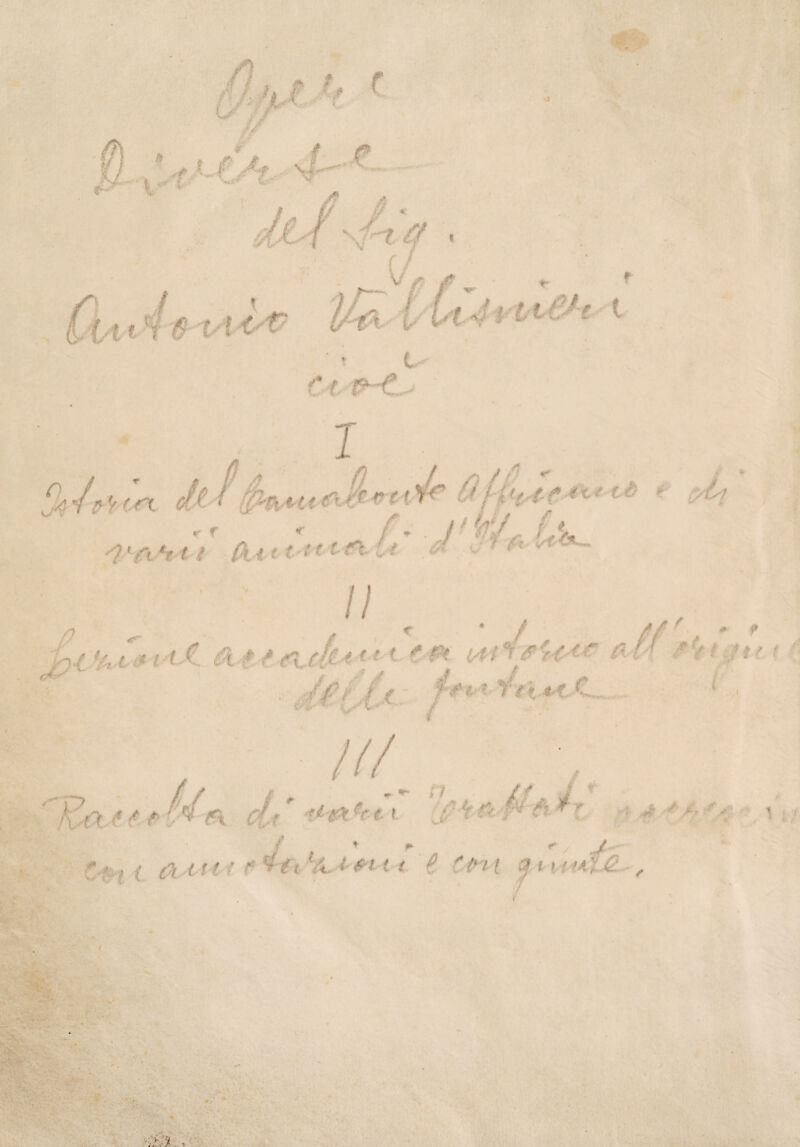 Opere
Diverse
del Sig.
Antonio Vallisnieri
cioè
I
Istoria del Camaleonte Affricano e di
varii animali d'Italia
II
Lezione accademica intorno all'origine
delle fontane
III
Raccolta di varii Trattati
con annotazioni e con giunte.